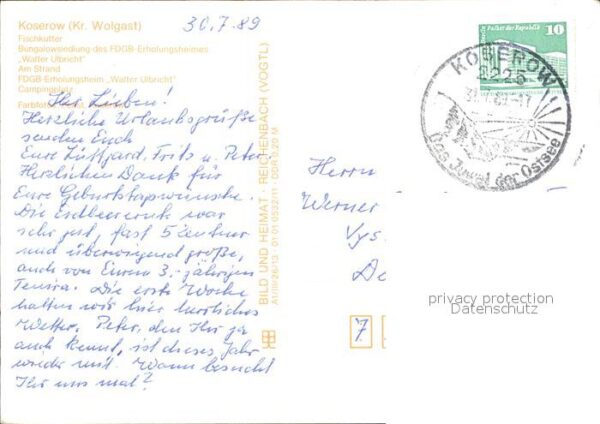 Koserow (Kr. Wolgast)
Fischkutter
Bungalowsiedlung des FDGB-Erholungsheimes
„Walter Ulbricht"
Am Strand
FDGB-Erholungsheim „Walter Ulbricht"
Campingplatz
Farbfotos
30.7.89
Ihr Lieben!
Herzliche Urlaubsgrüße
senden Euch
Eure Luftgard, Fritz u. Peter
Herzlichen Dank für
Eure Geburtstagswünsche.
Die Erdbeerernte war
sehr gut, fast 5 Centner
und überwiegend große,
auch von Euren 3.-jährigen
Die erste Woche
hatten wir hier herrliches
Wetter. Peter, den Ihr ja
auch kennt, ist dieses Jahr
wieder mit. Wann besucht
Ihr uns mal?
BILD UND HEIMAT · REICHENBACH (VOGTL)
A1/III/26/13 01 01 0532/11 DDR 0,20 M
Berlin, Palast der Republik
10
KOSEROW
2225
Das Juwel der Ostsee
Herrn
Werner
7
privacy protection
Datenschutz